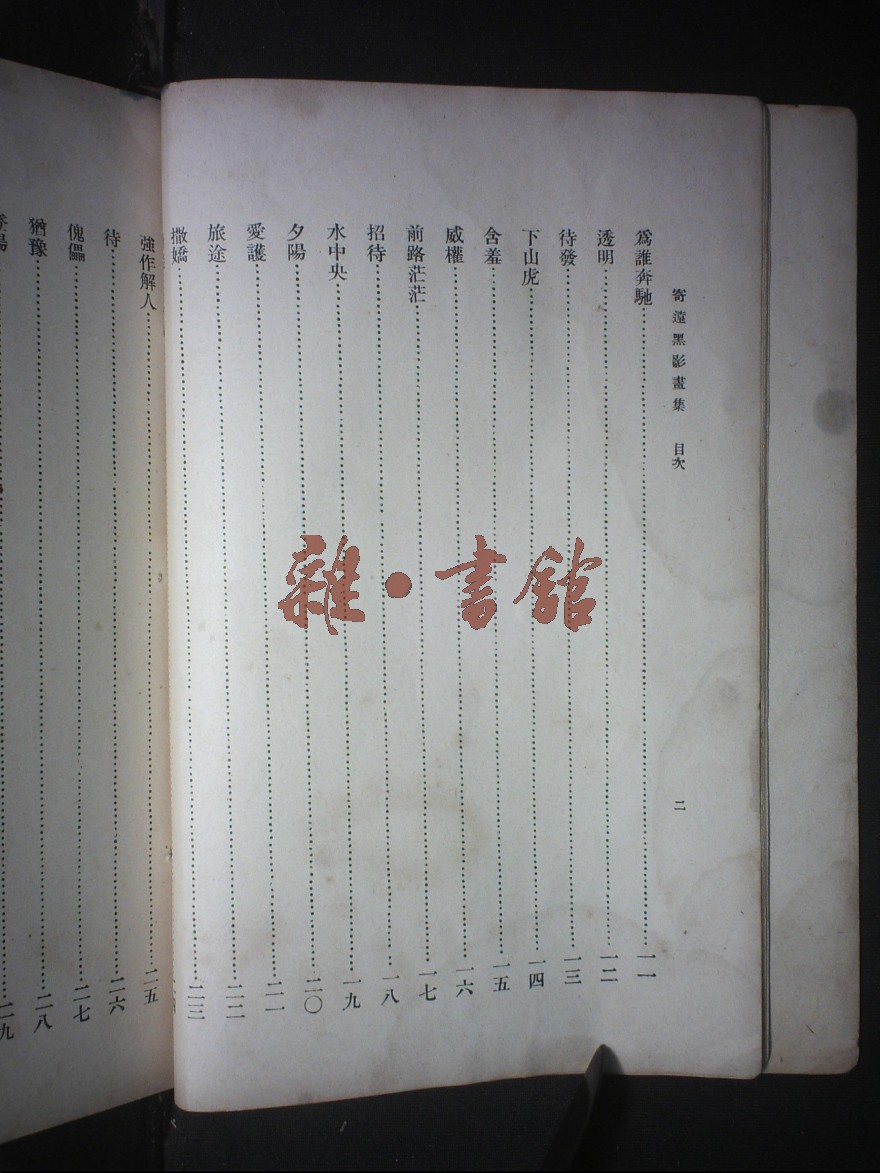 寄遠黑影畫集 目次 二
爲誰奔馳 一一
透明 一二
待發 一三
下山虎 一四
含羞 一五
威權 一六
前路茫茫 一七
招待 一八
水中央 一九
夕陽 二〇
愛護 二一
旅途 二二
撒嬌 二三
強作解人 二五
待 二六
傀儡 二七
猶豫 二八
二九
雜·書館